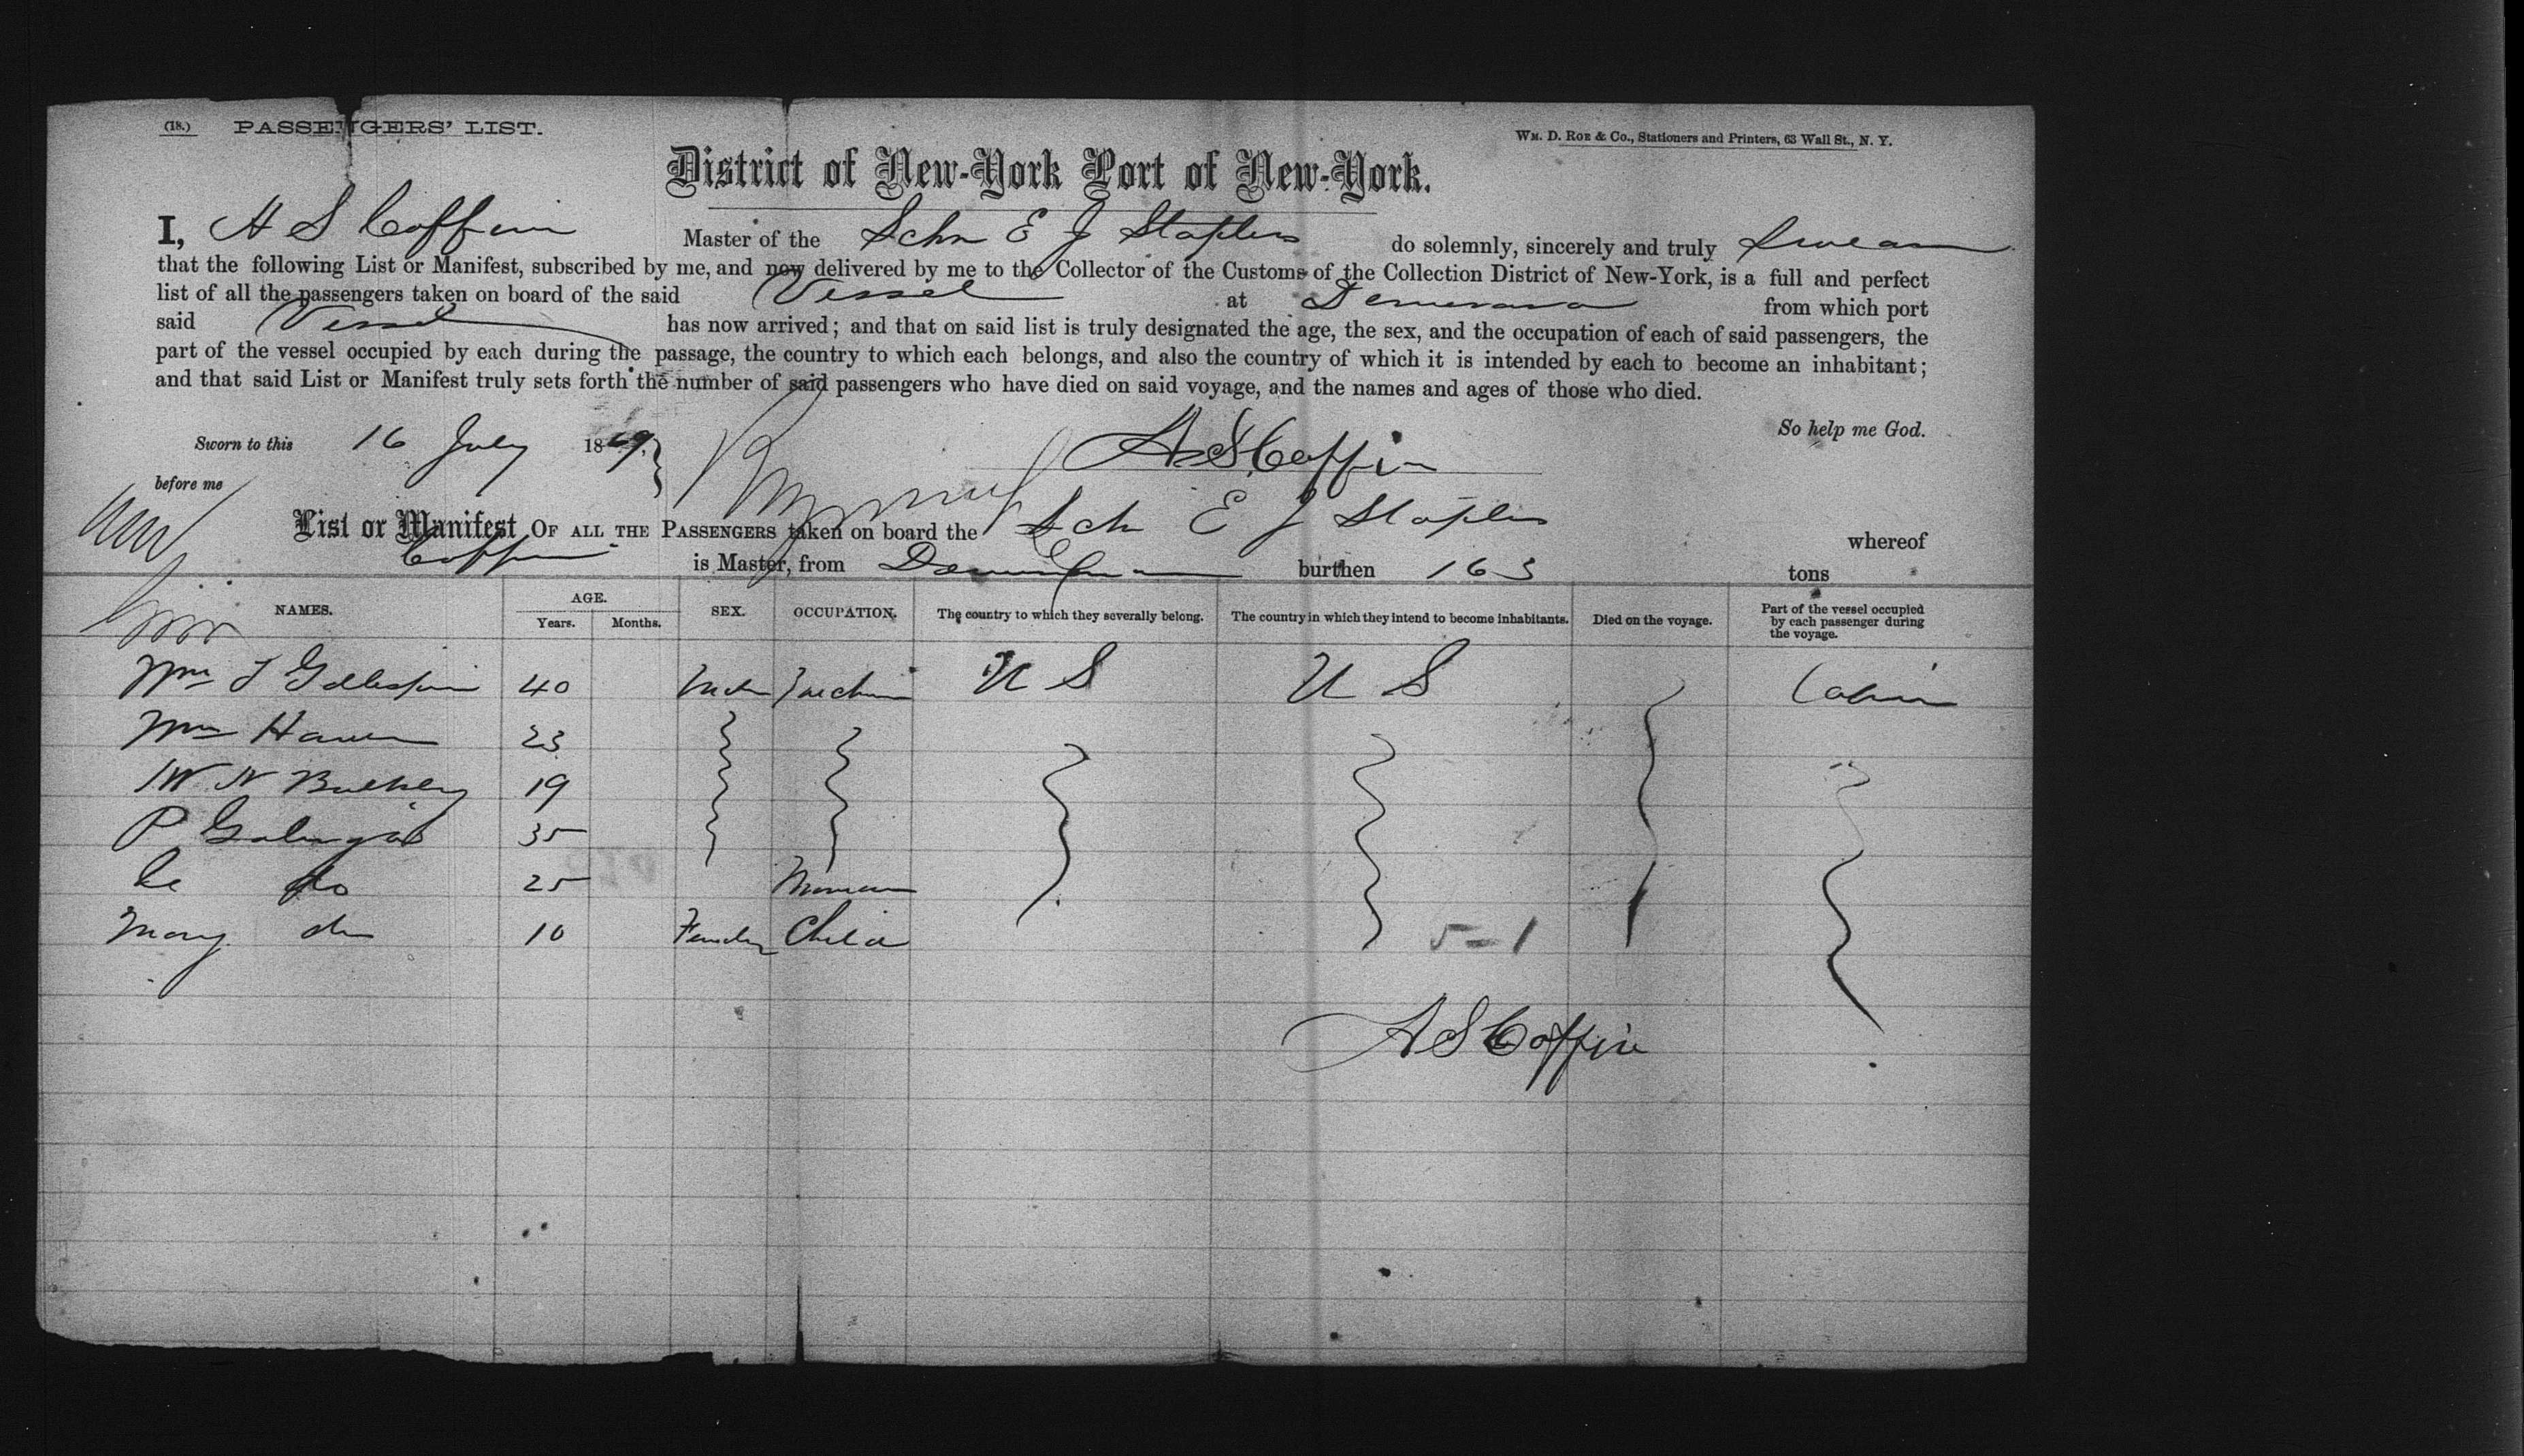 (18.) PASSENGERS' LIST.
WM. D. ROE & Co., Stationers and Printers, 63 Wall St., N. Y.
District of New-York Port of New-York.
I, A S Coffin Master of the Schr E J Staples do solemnly, sincerely and truly swear
that the following List or Manifest, subscribed by me, and now delivered by me to the Collector of the Customs of the Collection District of New-York, is a full and perfect
list of all the passengers taken on board of the said Vessel at Demerara from which port
said Vessel has now arrived; and that on said list is truly designated the age, the sex, and the occupation of each of said passengers, the
part of the vessel occupied by each during the passage, the country to which each belongs, and also the country of which it is intended by each to become an inhabitant;
and that said List or Manifest truly sets forth the number of said passengers who have died on said voyage, and the names and ages of those who died.
So help me God.
Sworn to this 16 July 1869,
A S Coffin
before me
List or Manifest OF ALL THE PASSENGERS taken on board the Sch E J Staples whereof
Coffin is Master, from Demerara burthen 163 tons
NAMES. AGE. Years. Months. SEX. OCCUPATION. The country to which they severally belong. The country in which they intend to become inhabitants. Died on the voyage. Part of the vessel occupied by each passenger during the voyage.
Wm 40 U S U S Cabin
Wm 23
W N Bulkley 19
P 35
do 25
Mary do 10 Female Child
5-1
A S Coffin